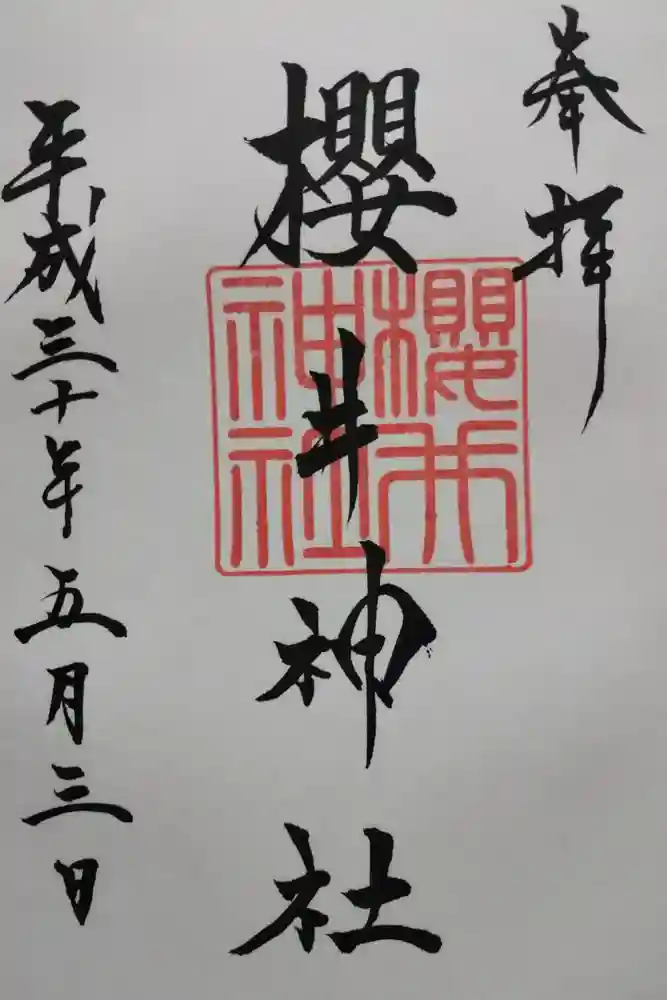 奉拝
櫻井神社
櫻井
神社
平成三十年五月三日